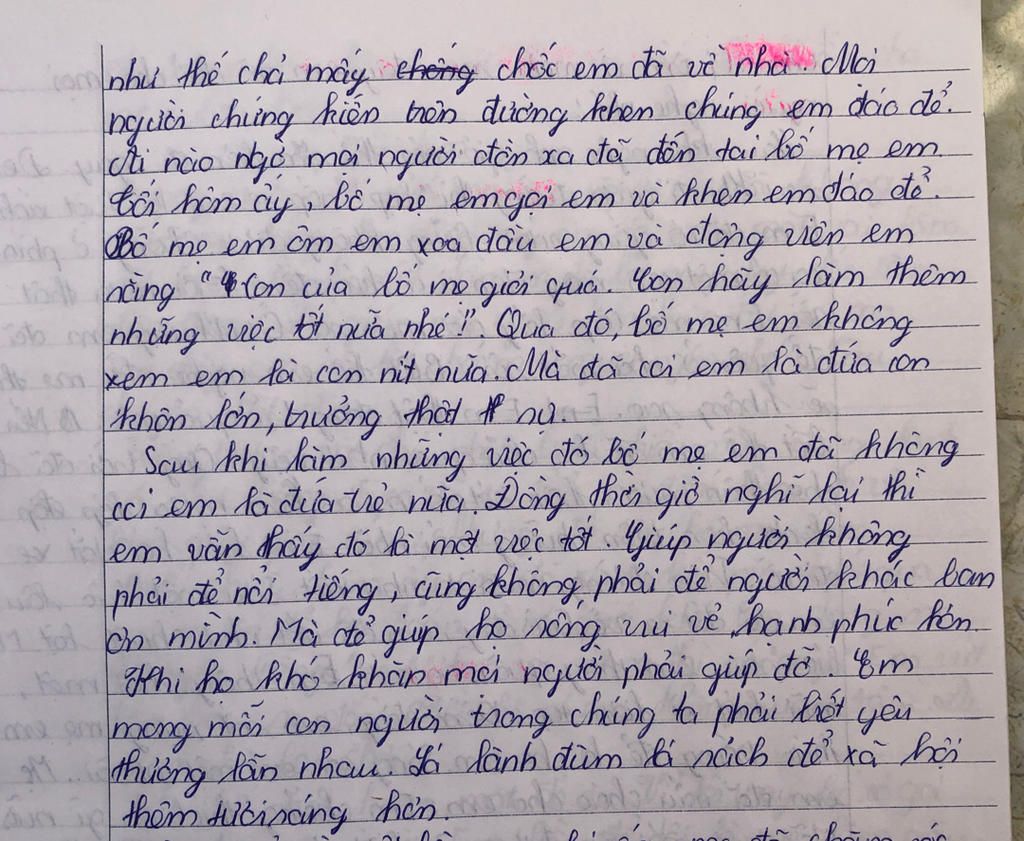 như thế chả mấy chống chốc em đã về nhà. Mọi
người chứng kiến trên đường khen chúng em đáo để.
Ai nào ngờ mọi người đồn xa đã đến tai bố mẹ em
tối hôm ấy, bố mẹ em gọi em và khen em đáo để.
Bố mẹ em ôm em xoa đầu em và động viên em
rằng " Con của bố mẹ giỏi quá. Con hãy làm thêm
những việc tốt nữa nhé!" Qua đó, bố mẹ em không
xem em là con nít nữa. Mà đã coi em là đứa con
khôn lớn, trưởng thật sự.
Sau khi làm những việc đó bố mẹ em đã không
coi em là đứa trẻ nữa. Đồng thời giờ nghĩ lại thì
em vẫn thấy đó là một việc tốt. Giúp người không
phải để nổi tiếng, cũng không phải để người khác ban
ơn mình. Mà để giúp họ sống vui vẻ, hạnh phúc hơn.
Khi họ khó khăn mọi người phải giúp đỡ. Em
mong mỗi con người trong chúng ta phải biết yêu
thương lẫn nhau. Lá lành đùm lá rách để xã hội
thêm tươi sáng hơn.